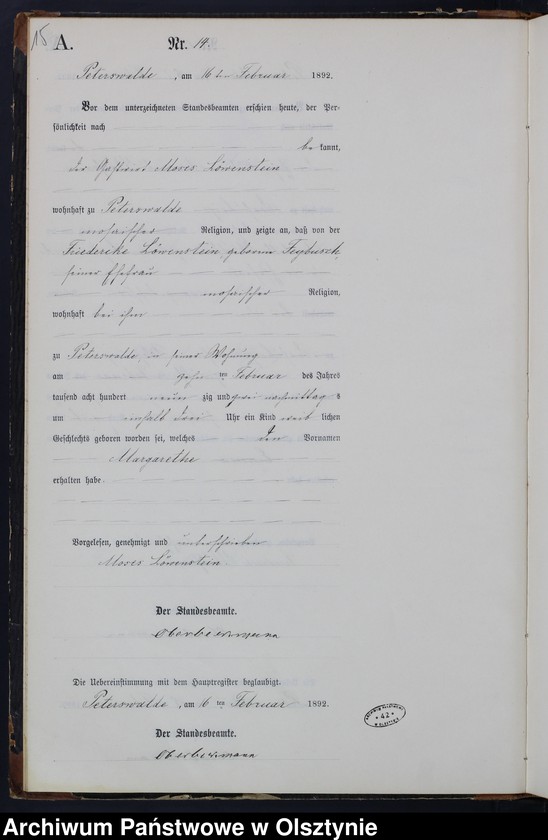 15
A. Nr. 14.
Peterswalde, am 16ten Februar 1892.
Vor dem unterzeichneten Standesbeamten erschien heute, der Per-
sönlichkeit nach
bekannt,
der Gastwirt Moses Löwenstein
wohnhaft zu Peterswalde
mosaischer Religion, und zeigte an, daß von der
Friederike Löwenstein geborene Feybusch
seiner Ehefrau
mosaischer Religion,
wohnhaft bei ihm
zu Peterswalde in seiner Wohnung
am zehnten Februar des Jahres
tausend acht hundert neunzig und zwei nachmittags
um einhalb drei Uhr ein Kind weiblichen
Geschlechts geboren worden sei, welches den Vornamen
Margarethe
erhalten habe.
Vorgelesen, genehmigt und unterschrieben
Moses Löwenstein.
Der Standesbeamte.
Die Uebereinstimmung mit dem Hauptregister beglaubigt.
Peterswalde, am 16ten Februar 1892.
Der Standesbeamte.
42
Archiwum Państwowe w Olsztynie